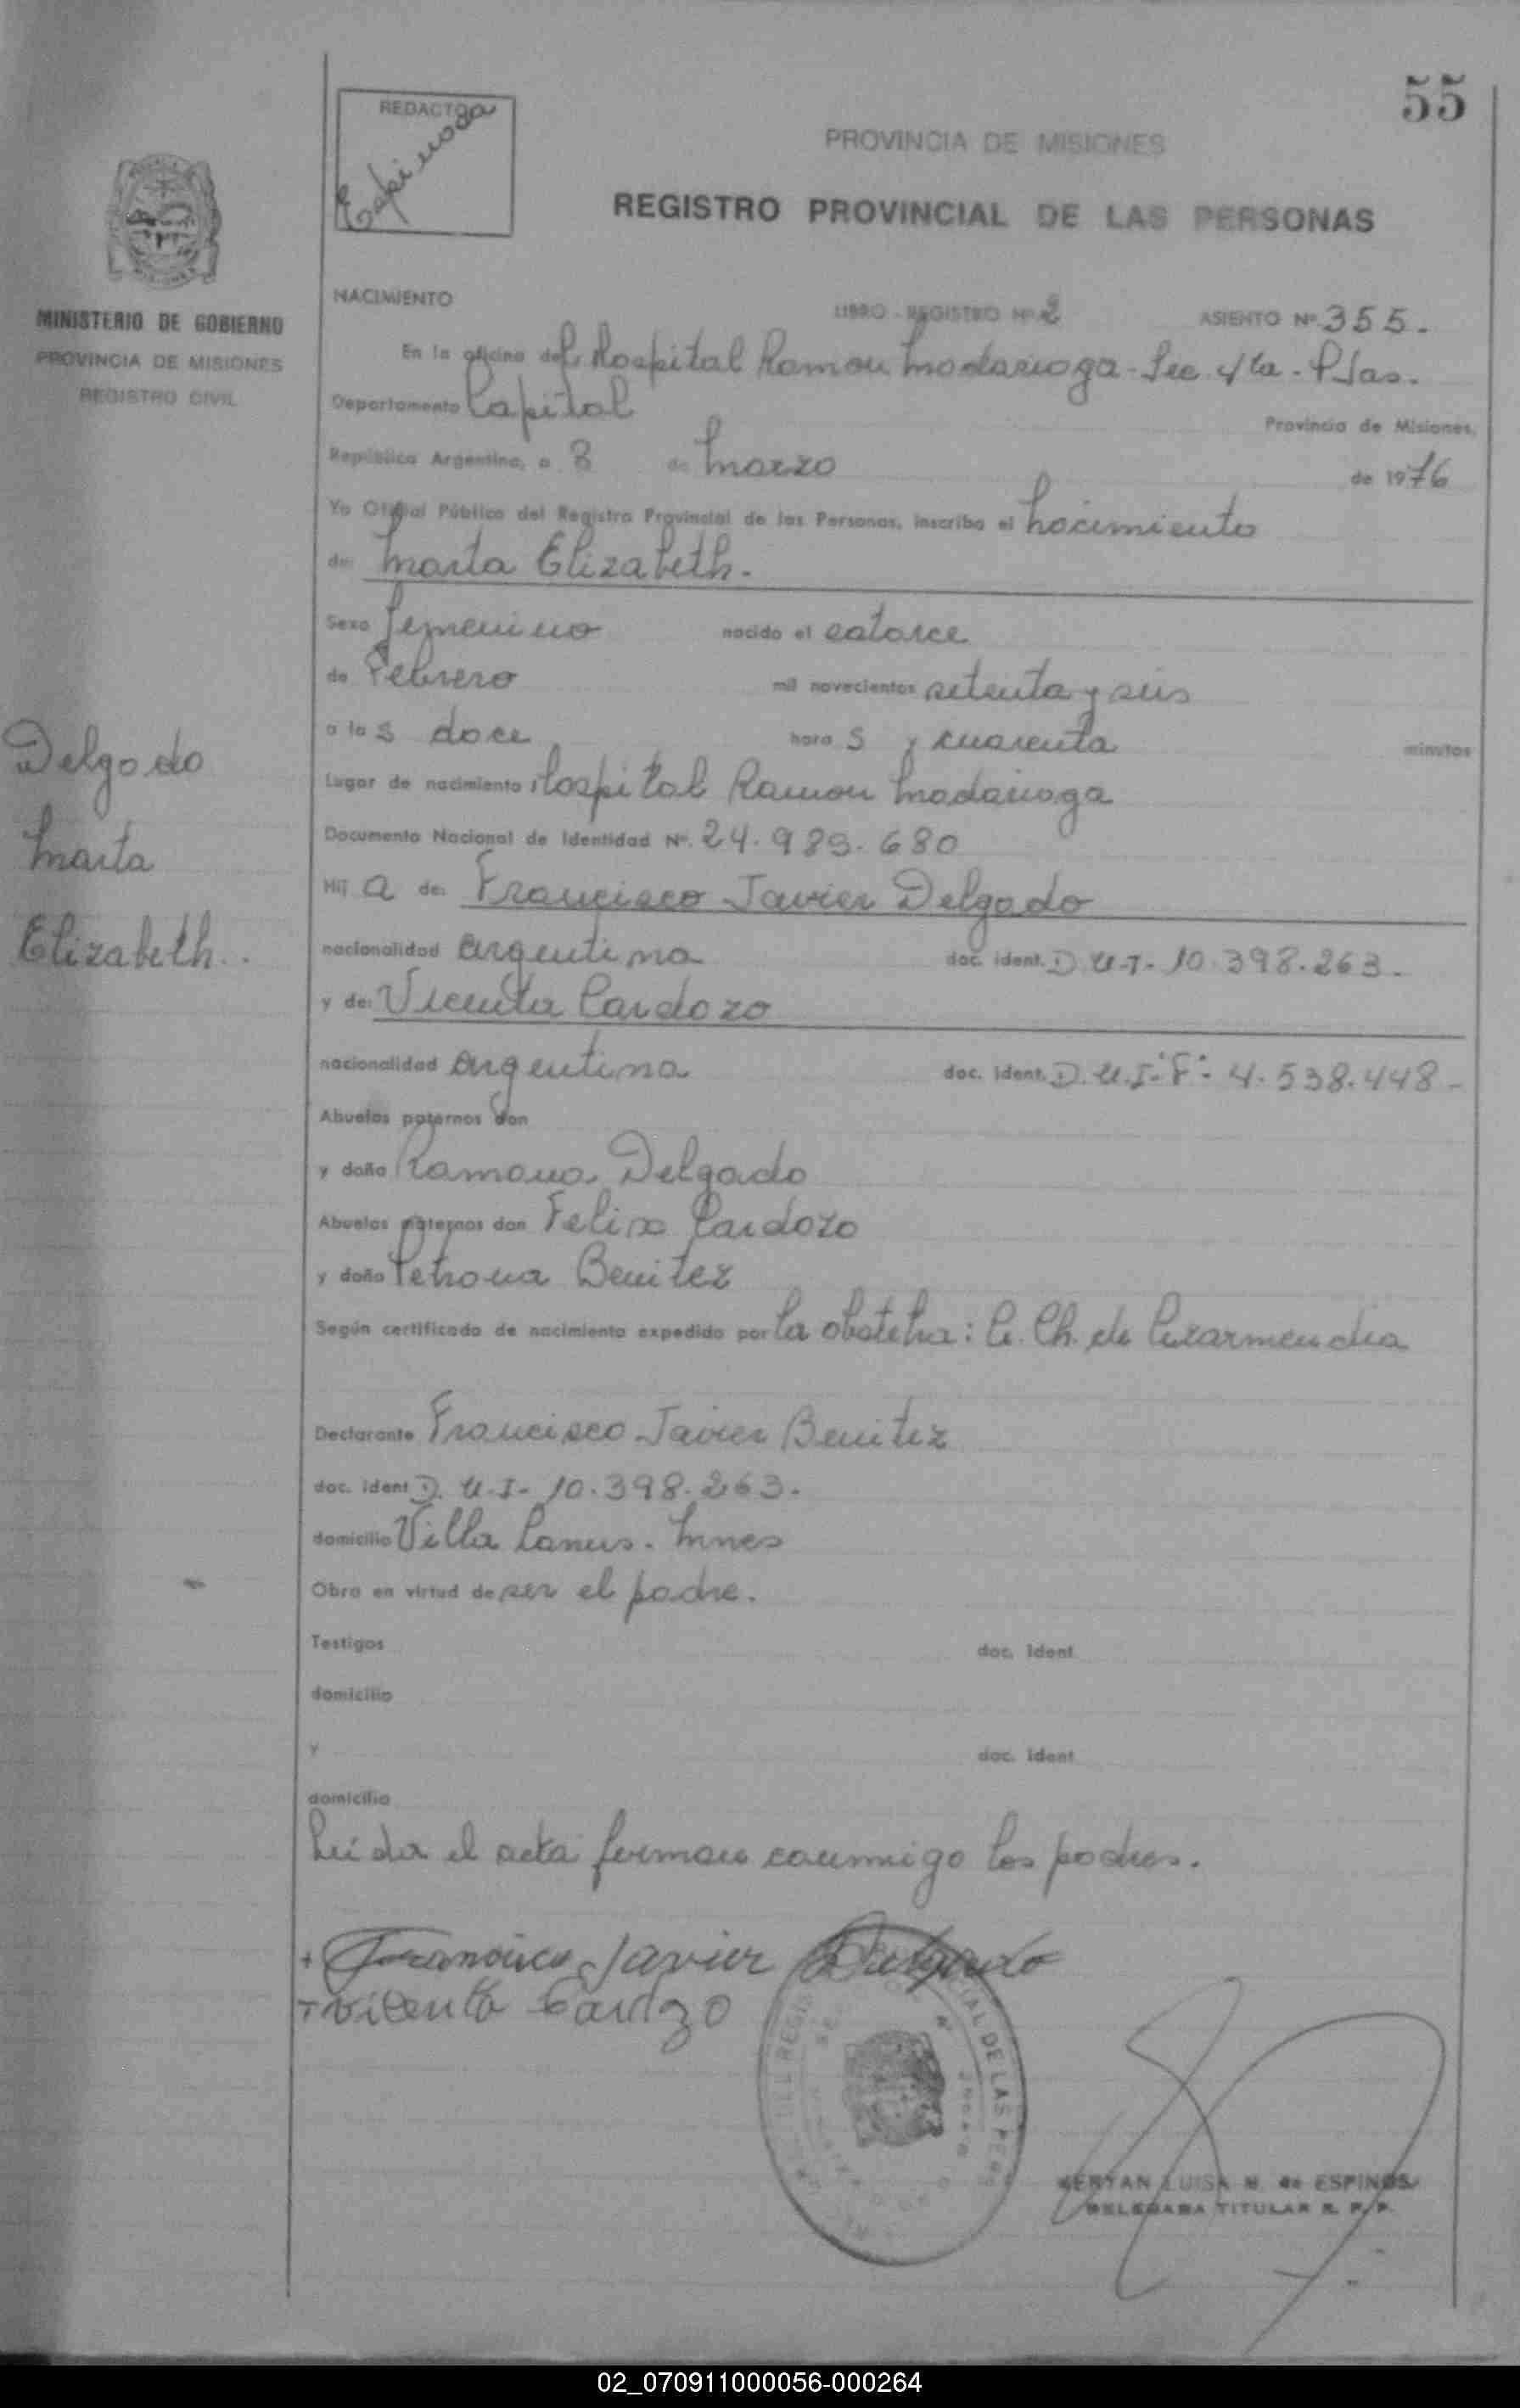 55
REDACTOR
Espinosa
PROVINCIA DE MISIONES
REGISTRO PROVINCIAL DE LAS PERSONAS
MINISTERIO DE GOBIERNO
PROVINCIA DE MISIONES
REGISTRO CIVIL
NACIMIENTO LIBRO REGISTRO Nº 2 ASIENTO Nº 355.
En la oficina del Hospital Ramon Madariaga - Sec. 4ta - Pdas.
Departamento Capital Provincia de Misiones,
República Argentina, a 3 de Marzo de 1976
Yo Oficial Público del Registro Provincial de las Personas, inscribo el nacimiento
de: Marta Elizabeth.
Sexo femenino nacido el catorce
de Febrero mil novecientos setenta y seis
a las doce horas y cuarenta minutos
Delgado
Marta
Elizabeth.
Lugar de nacimiento Hospital Ramon Madariaga
Documento Nacional de Identidad Nº. 24.989.680
Hija de: Francisco Javier Delgado
nacionalidad argentina doc. ident. D.U.I- 10.398.263.
y de: Vicenta Cardozo
nacionalidad argentina doc. ident. D.U.I."F". 4.538.448-
Abuelos paternos don
y doña Ramona Delgado
Abuelos maternos don Felix Cardozo
y doña Petrona Benitez
Según certificado de nacimiento expedido por la obstetra: C. Ch. de
Declarante Francisco Javier Benitez
doc. ident D.U.I- 10.398.263.
domicilio Villa Lanus. Mnes
Obra en virtud de ser el padre.
Testigos doc. ident
domicilio
y doc. ident
domicilio
Leida el acta firman conmigo los padres.
+ Francisco Javier Delgado
+ Vicenta Cardzo
LUISA N. de ESPINOSA
DELEGADA TITULAR R. P. P.
02_070911000056-000264